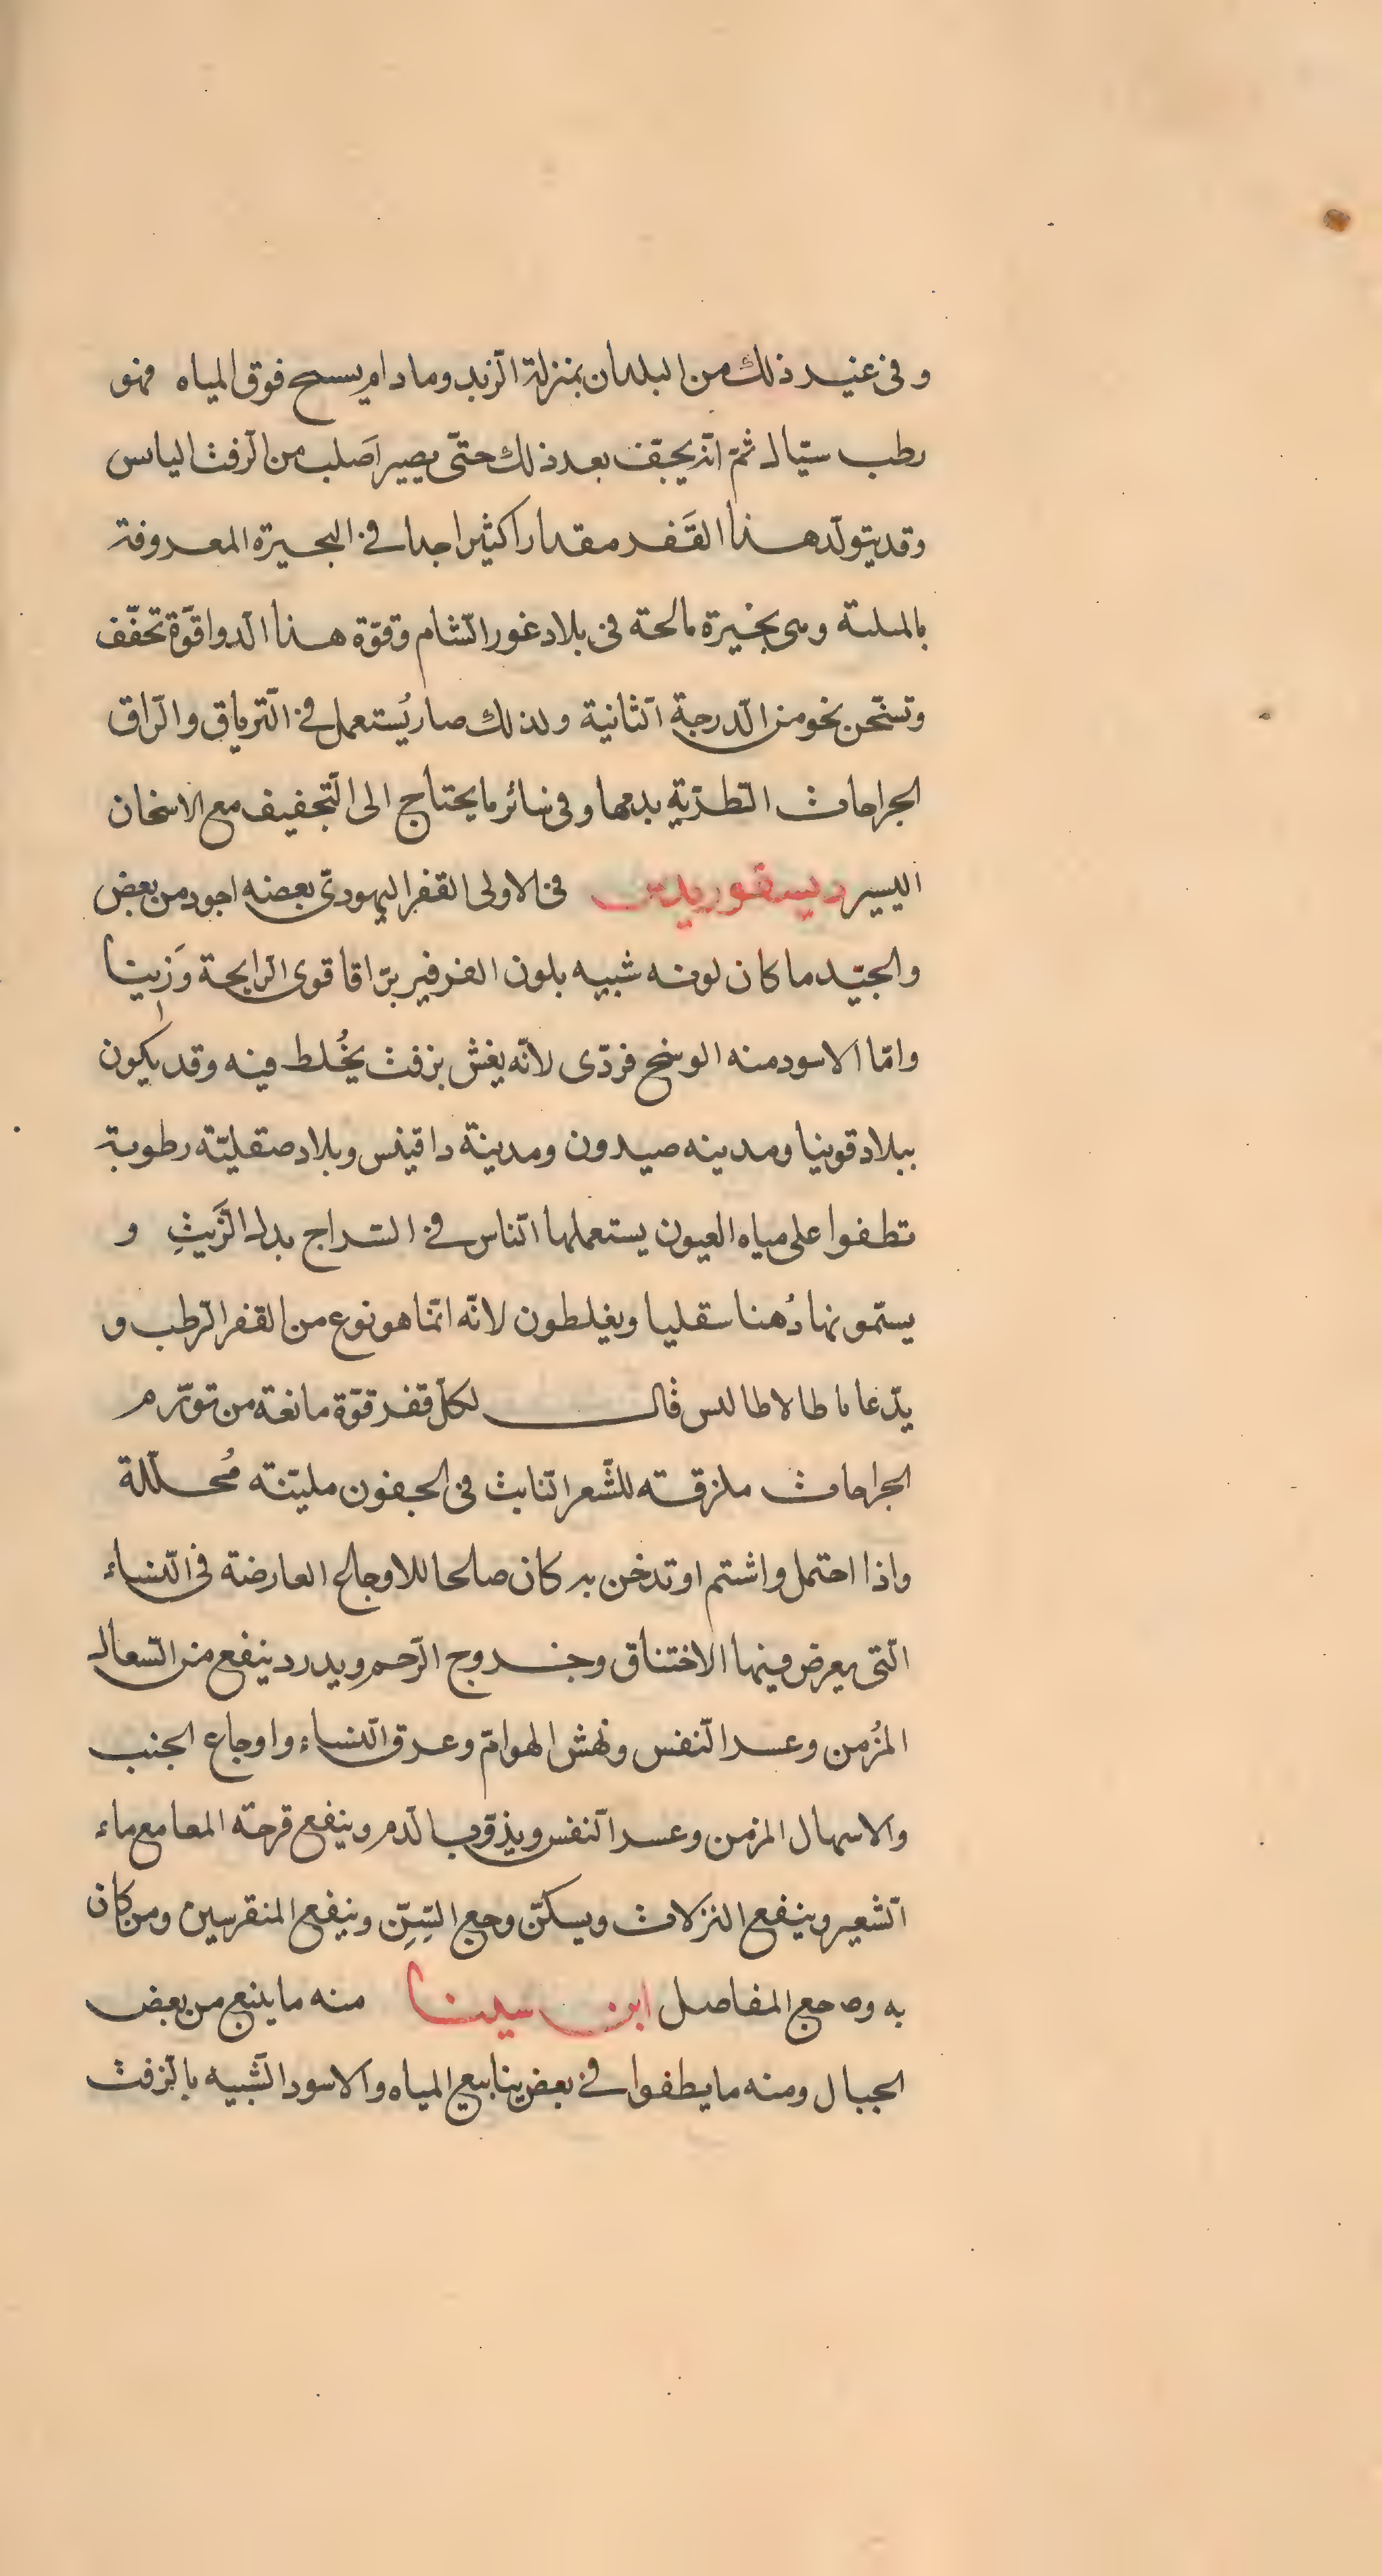 وفى غير ذلك من البلدان بمنزلة الزبد وما دام يسبح فوق المياه فهو
رطب سيّال ثمّ انّه يجفّف بعد ذلك حتّى يصير اَصلب من الزفت اليابس
وقد يتولّد هذا القَفر مقدارا كثيرا جدا فى البحيرة المعروفة
بالميتة وهى بحيرة مالحة فى بلاد غور الشام وقوّة هذا الدوا قوّة تجفّف
وتسخّن نحو من الدرجة الثانية ولذلك صار يُستعمل فى الترياق والزاق
الجراحات الطريّة بدمها وفى سائر ما يحتاج الى التجفيف مع الاسخان
اليسير ديسقوريدس فى الاولى القفر اليهودىّ بعضه اجود من بعض
والجيّد ما كان لونه شبيه بلون الفرفير برّاقا قوى الرايحة وَزينا
وامّا الاسود منه الوسخ فردّى لانّه يغش بزفت يخُلط فيه وقد يكون
ببلاد قوينيا ومدينه صيدون ومدينة داقينس وبلاد صقليّة رطوبة
تطفوا على مياه العيون يستعملها النّاس فى السّراج بدل الزَيتِ و
يستمونها دُهنا سقليا ويغلطون لانّه انّما هو نوع من القفر الرطب و
يدّعا ىاطالاطاليس قال لكلّ قفر قوّة مانعة من تورّم
الجراحات ملزقته للشّعر النّابت فى الجفون مليّنته مُحللّة
واذا احتمل واشتم او تدخن به كان صالحا للاوجاع العارضة فى النّساء
الّتى يعرض فيها الاختناق وخروج الرّحم ويدرد ينفع من السّعال
المُزمن وعسر النّفس ونهش الهوامّ وعرق النّساء واوجاع الجنب
والاسهال المزمن وعسر النفس ويذوّب الدّم وينفع قرحة المعا مع ماء
الشّعير وينفع النزلات ويسكنّ وجع السِّنِّ وينفع المنقرسين ومن كان
به وجع المفاصل ابن سينا منه ما ينبع من بعض
الجبال ومنه ما يطفوا فى بعض ينابيع المياه والاسود الشّبيه بالزفت